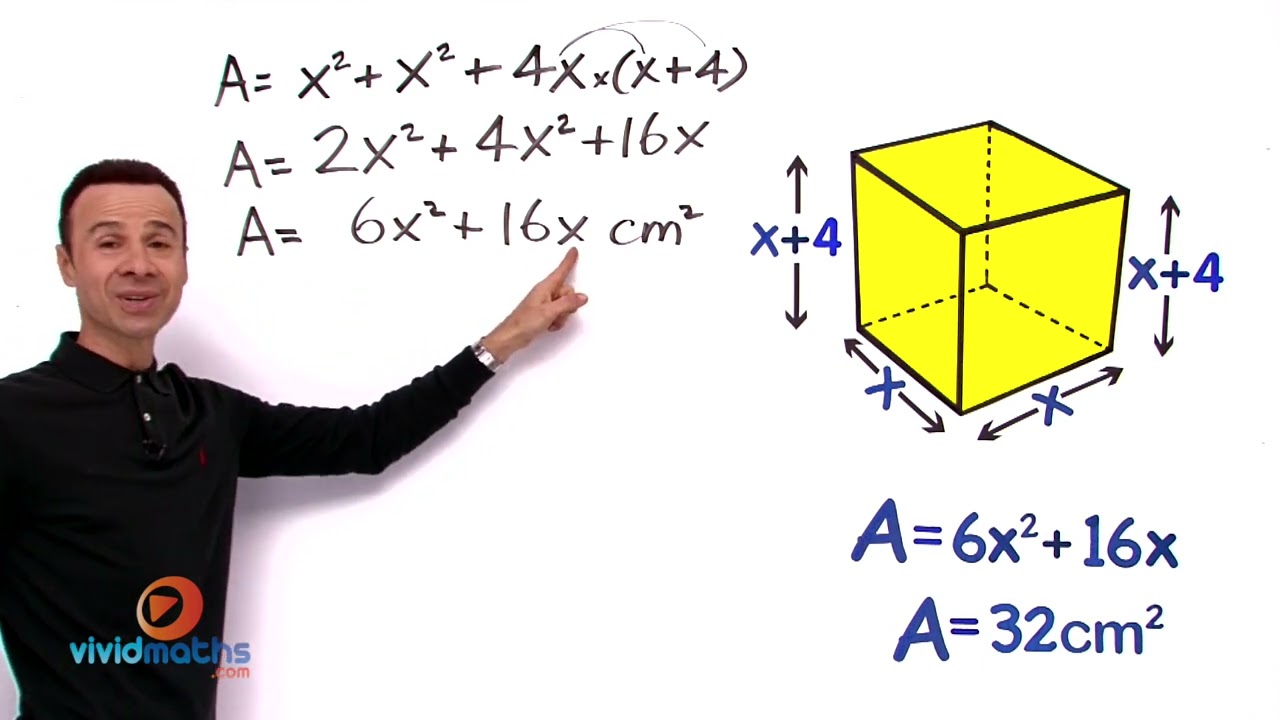 A= x²+x²+4x×(x+4)
A= 2x²+4x²+16x
A= 6x²+16x cm²
x+4
x+4
x
x
A=6x²+16x
A=32cm²
vividmaths
.com